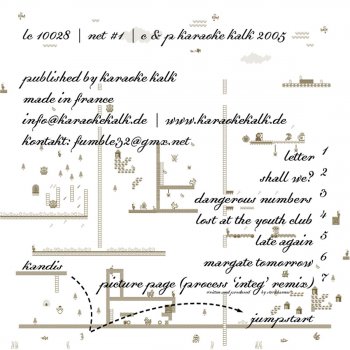 lc 10028 | net #1 | c & p karaoke kalk 2005
published by karaoke kalk
made in france
info@karaokekalk.de | www.karaokekalk.de
kontakt: fumble32@gmx.net
letter 1
shall we? 2
dangerous numbers 3
lost at the youth club 4
late again 5
margate tomorrow 6
picture page (process 'integ' remix) 7
kandis
jumpstart